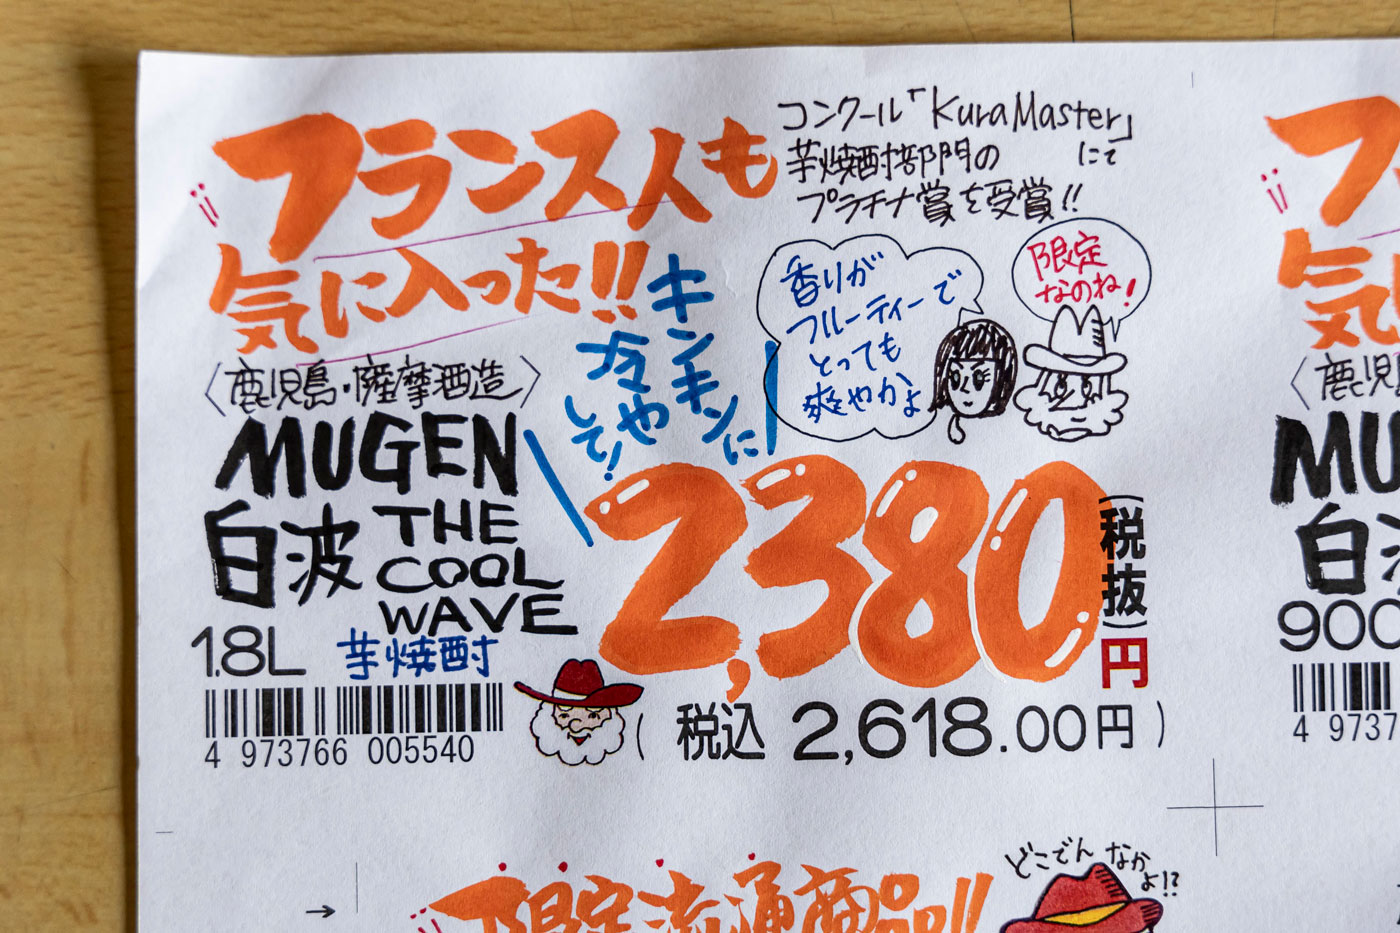 フランス人も
気に入った!!
コンクール「Kura Master」
にて
芋焼酎部門の
プラチナ賞を受賞!!
キンキンに
冷や
して!
香りが
フルーティーで
とっても
爽やかよ
限定
なのね!
〈鹿児島・薩摩酒造〉
MUGEN
白波
THE
COOL
WAVE
1.8L
芋焼酎
2,380
(税抜)
円
4 973766 005540
(税込 2,618.00円)
フ
気
〈鹿児
MU
白
900
4 9737
限定流通商品!!
どこでん なか
よ!?